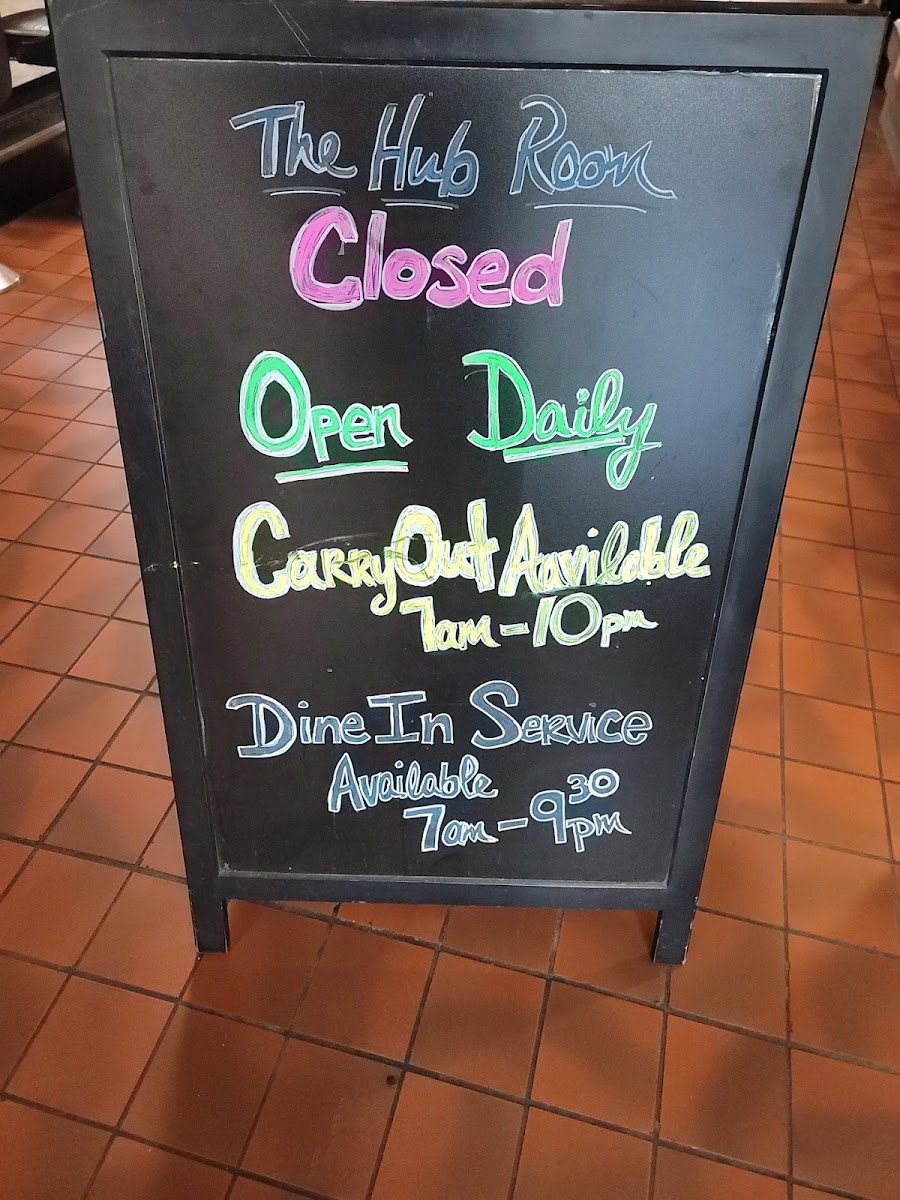 The Hub Room
Closed
Open Daily
Carry Out Aavilable
7am - 10pm
Dine In Service
Available
7am - 930 pm